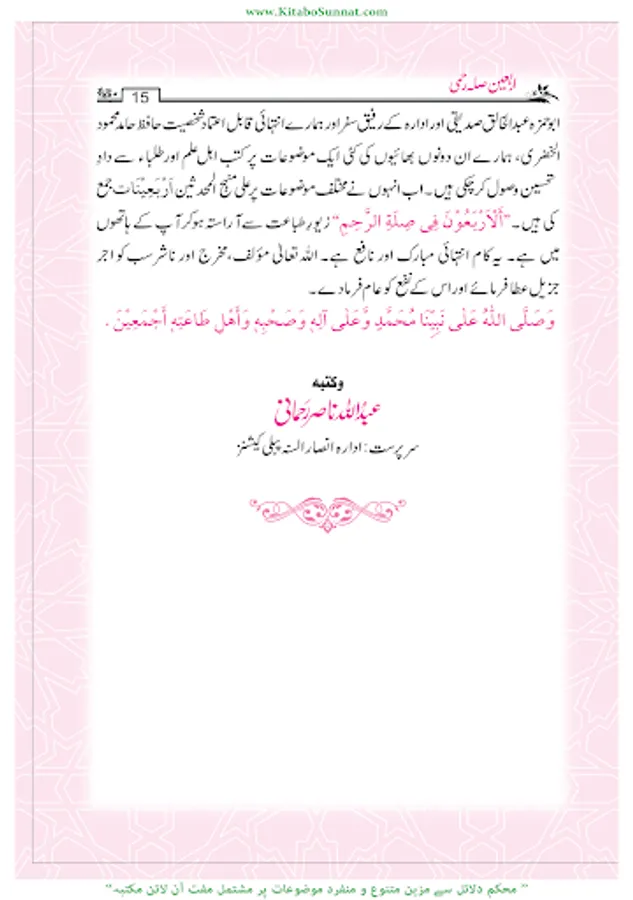 www.KitaboSunnat.com
اربعین صلہ رحمی
15
ابوحمزہ عبدالخالق صدیقی اور ادارہ کے رفیق سفر اور ہمارے انتہائی قابل اعتماد شخصیت حافظ حامد محمود
الخضری، ہمارے ان دونوں بھائیوں کی کئی ایک موضوعات پر کتب اہل علم اور طلباء سے دادِ
تحسین وصول کر چکی ہیں۔ اب انہوں نے مختلف موضوعات پر علی منہج المحدثین اَرْبَعِیْنَات جمع
کی ہیں۔ ”اَلْاَرْبَعُوْنَ فِی صِلَةِ الرَّحِمِ“ زیورِ طباعت سے آراستہ ہو کر آپ کے ہاتھوں
میں ہے۔ یہ کام انتہائی مبارک اور نافع ہے۔ اللہ تعالیٰ مؤلف، مخرج اور ناشر سب کو اجر
جزیل عطا فرمائے اور اس کے نفع کو عام فرما دے۔
وَصَلَّی اللّٰهُ عَلٰی نَبِیِّنَا مُحَمَّدٍ وَّعَلٰی آلِهٖ وَصَحْبِهٖ وَأَهْلِ طَاعَتِهٖ أَجْمَعِیْنَ .
وکتبه
عبداللہ ناصر رحمانی
سرپرست: ادارہ انصار السنہ پبلی کیشنز
”محکم دلائل سے مزین متنوع و منفرد موضوعات پر مشتمل مفت آن لائن مکتبہ“